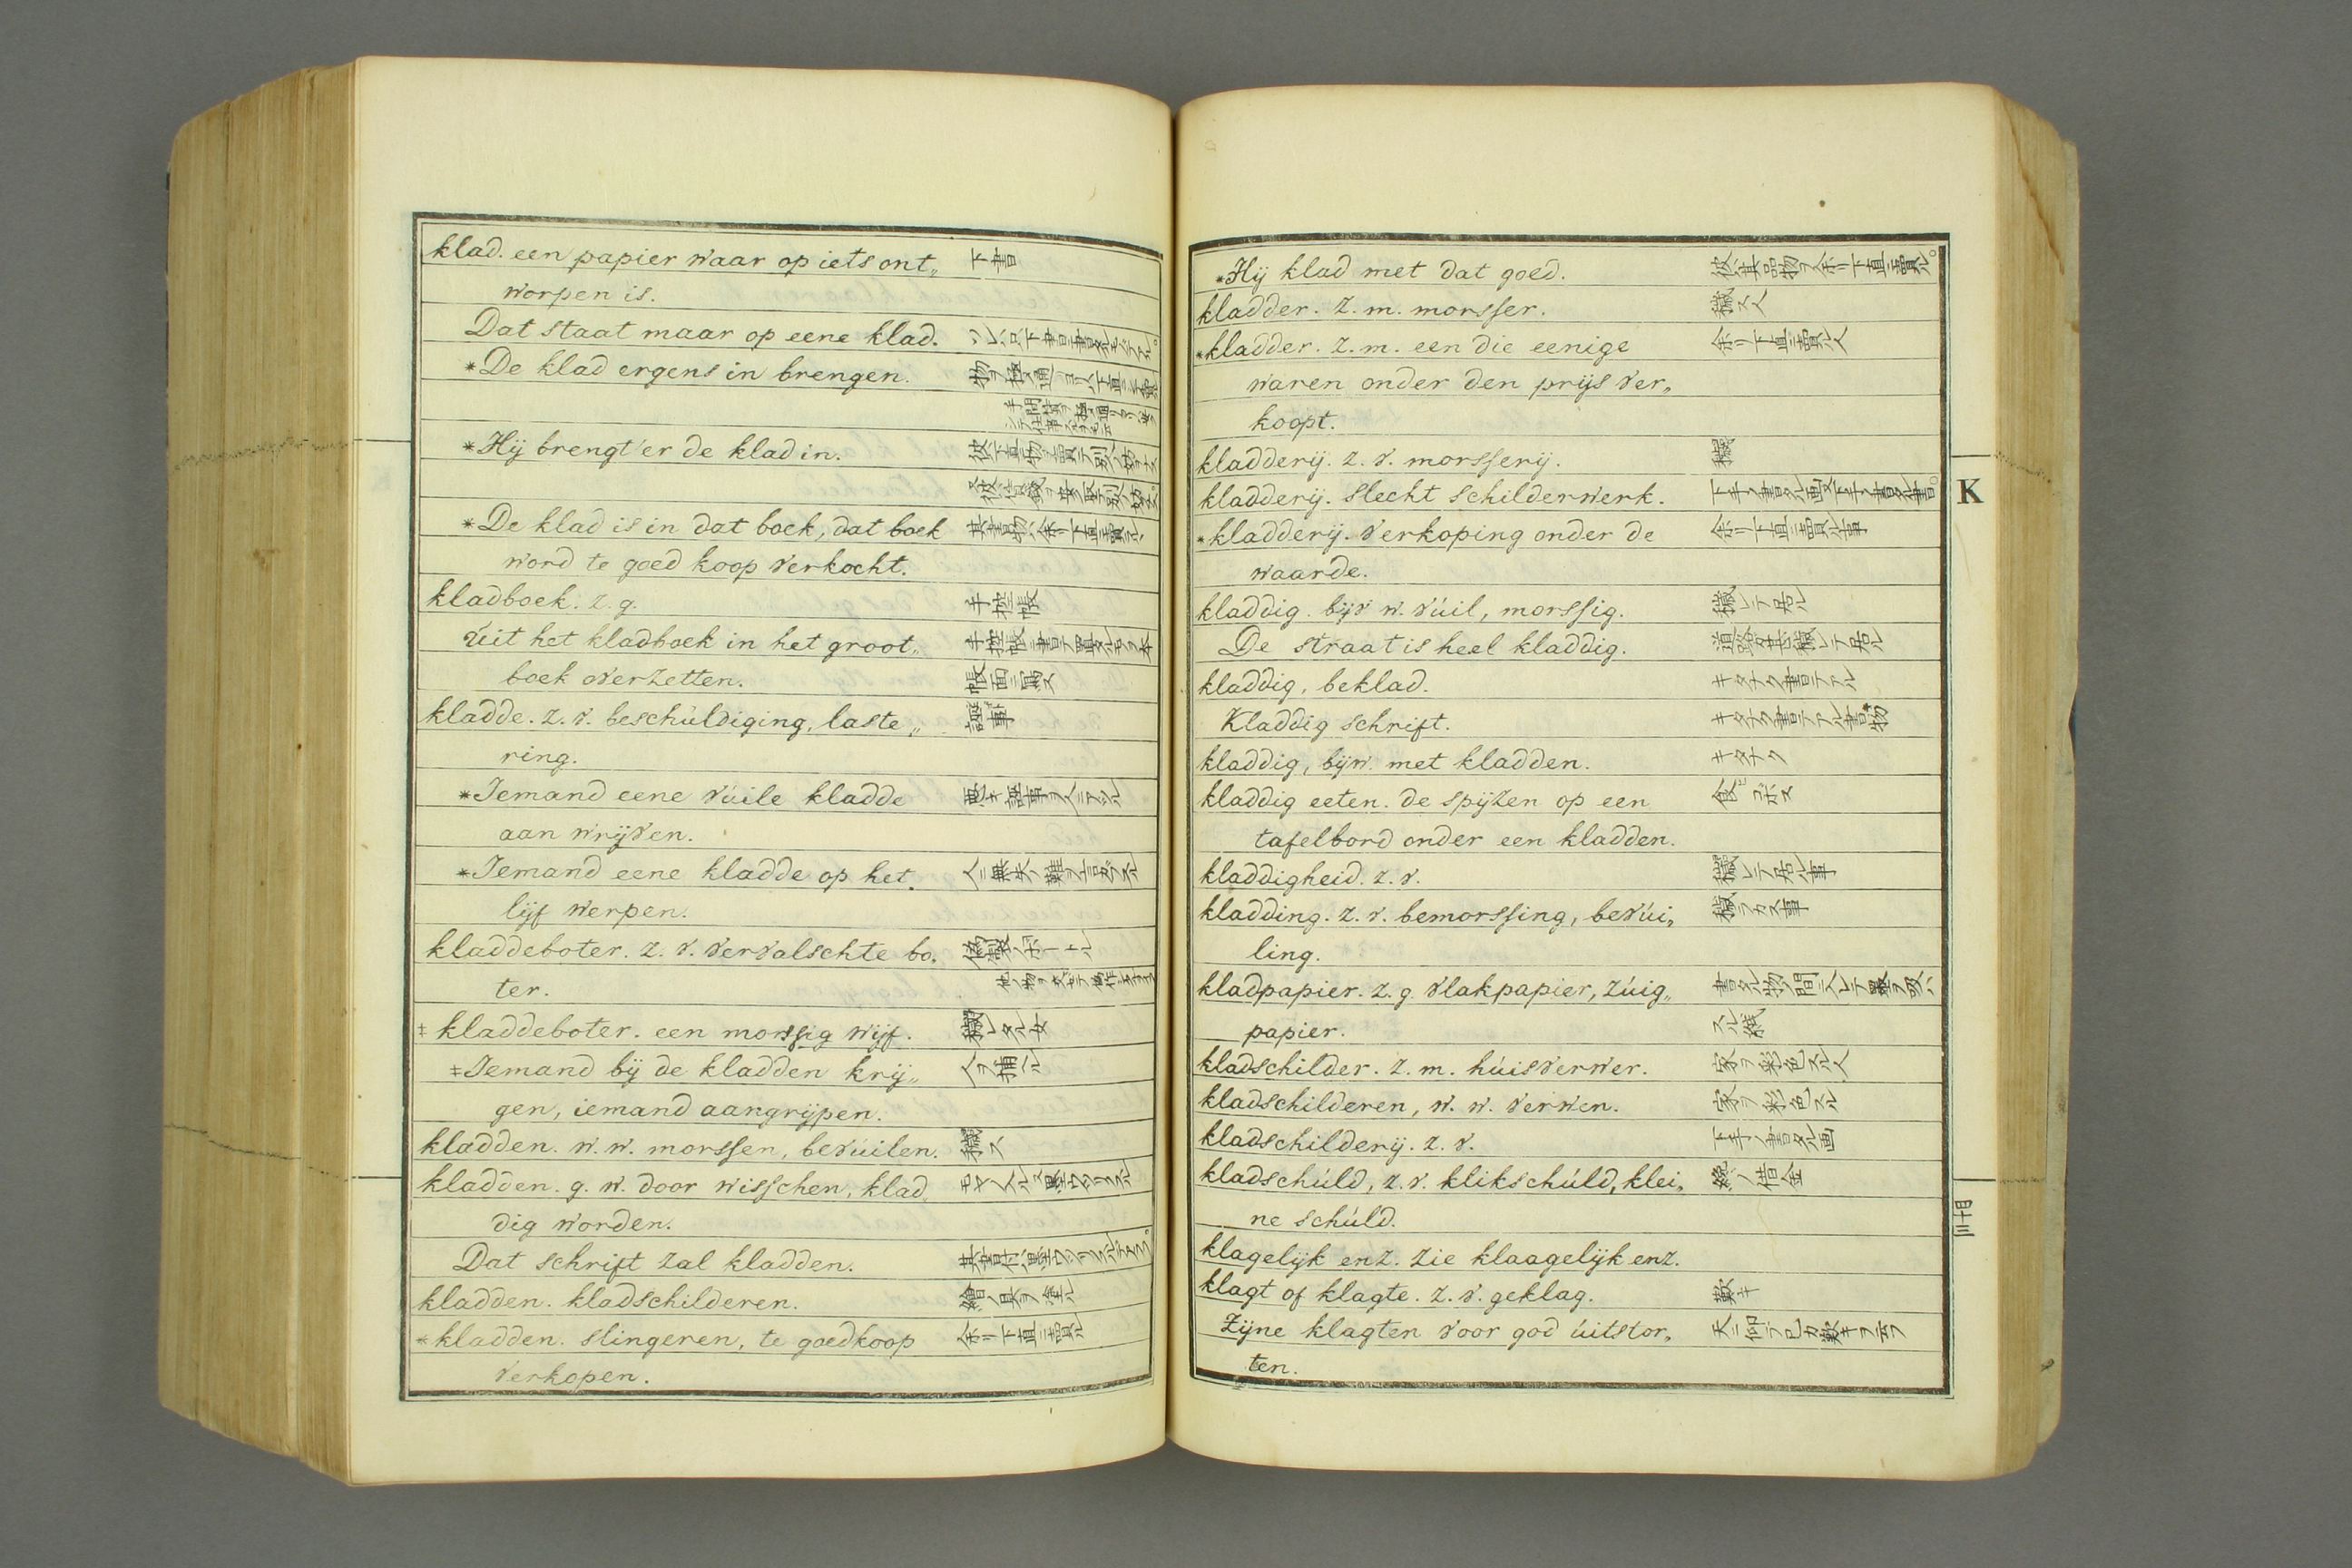 klad. een papier waar op iets ont„ 下書
worpen is.
Dat staat maar op eene klad.
*De klad ergens in brengen.
*Hij brengt'er de klad in.
*De klad is in dat boek, dat boek
word te goed koop verkocht.
kladboek. z. g. 手控帳
Uit het kladboek in het groot„
boek overzetten. 帳面ニ寫ス
kladde. z. v. beschúldiging, laste„
ring.
*Iemand eene vúile kladde
aan wrijven.
*Iemand eene kladde op het.
lijf werpen.
kladdeboter. z. v. vervalschte bo. 偽製ノボートル
ter.
‡ kladdeboter. een morssig wijf. 穢レタル女
‡Iemand bij de kladden krij„ 人ヲ捕ル
gen, iemand aangrijpen.
kladden. w. w. morssen, bevúilen. 穢ス
kladden. g. w. door wisschen, klad
dig worden.
Dat schrift zal kladden.
kladden. kladschilderen. 繪ノ具ヲ塗ル
*kladden. slingeren, te goedkoop 余リ下直ニ賣ル
verkopen.
*Hij klad met dat goed. 彼其品物ヲ余リ下直ニ賣ル。
kladder. z. m. morsser. 穢ス人
*kladder. z. m. een die eenige 余リ下直ニ賣ル人
waren onder den prijs ver„
koopt.
kladderij. z. v. morsserij. 穢
kladderij. slecht schilderwerk.
*kladderij. verkoping onder de 余リ下直ニ賣ル事
waarde.
kladdig. bijv w. vúil, morssig. 穢レテ居ル
De straat is heel kladdig. 道路甚穢レテ居ル
kladdig, beklad. キタナク書テアル
Kladdig schrift. キタナク書テアル書物
kladdig, bijw. met kladden. キタナク
kladdig eeten. de spijzen op een 食ヒコボス
tafelbord onder een kladden.
kladdigheid. z. v. 穢レテ居ル事
kladding. z. v. bemorssing, bevúi„ 穢ラカス事
ling.
kladpapier. z. g. vlakpapier, zúig„
papier.
kladschilder. z. m. húisverwer. 家ヲ彩色スル人
kladschilderen, w. w. verwen. 家ヲ彩色スル
kladschilderij. z. v. 下手ノ書タル画
kladschúld, z. v. klikschúld, klei„
ne schúld.
klagelijk enz. zie klaagelijk enz.
klagt of klagte. z. v. geklag. 歎キ
Zijne klagten voor god úitstor„
ten.
K